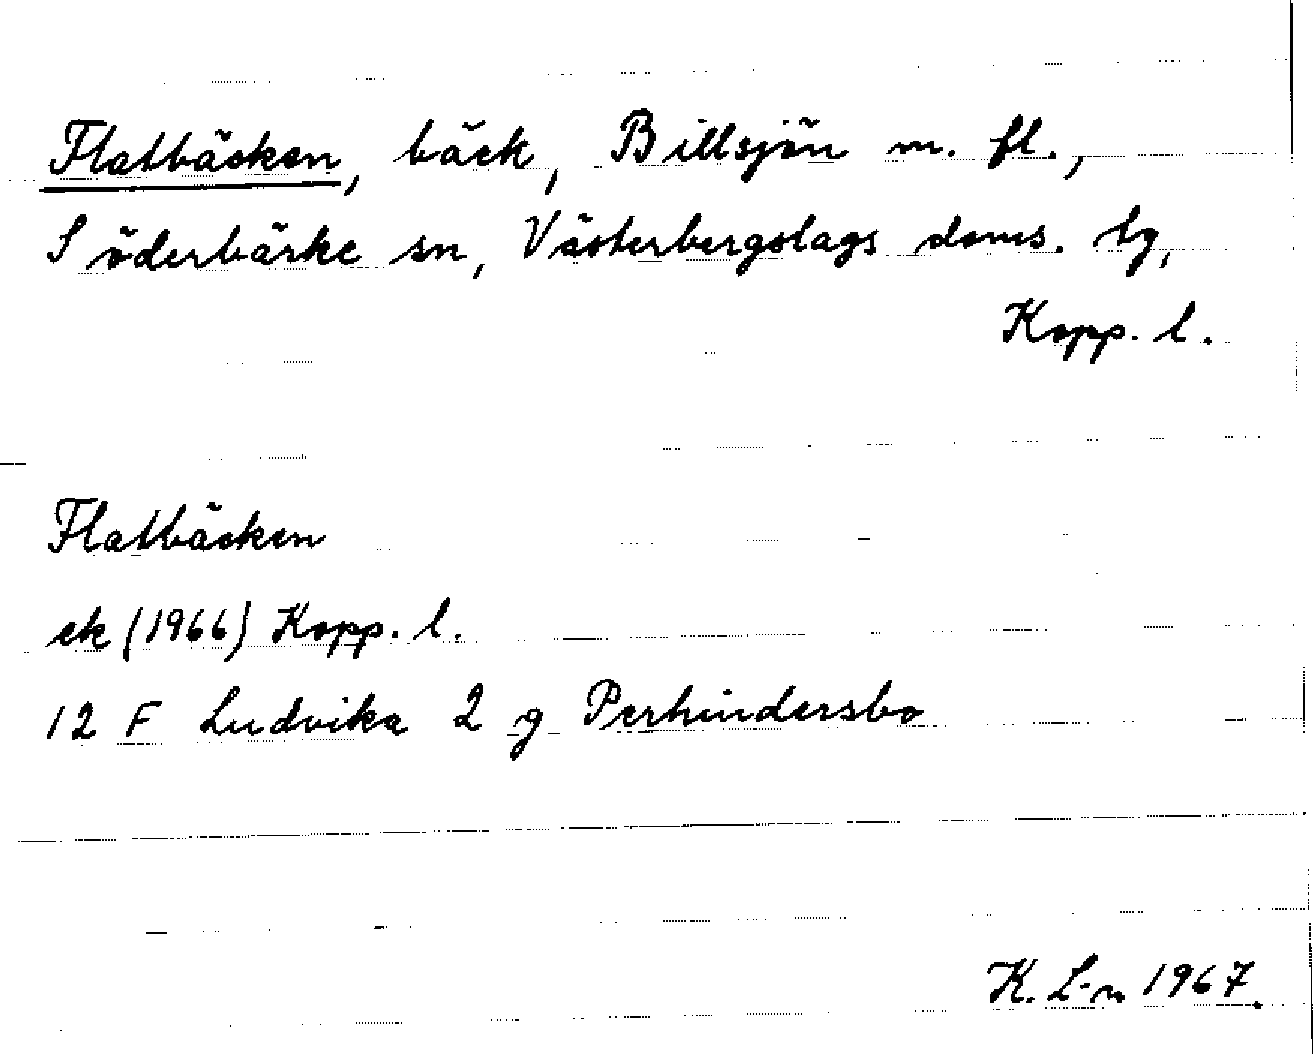 Flatbäcken, bäck, Billsjön m. fl.,
Söderbärke sn, Västerbergslags doms. tg,
Kopp. l.
Flatbäcken
ek (1966) Kopp. l.
12 F Ludvika 2 g Perhindersbo
K. L-n 1967.